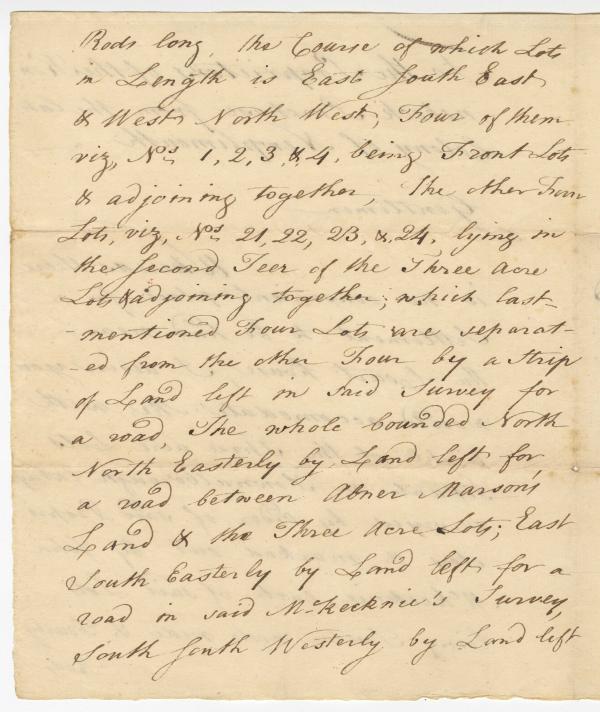 Rods long, the Course of which Lots
in Length is East South East
& West North West, Four of them
viz, Nos. 1, 2, 3 & 4, being Front Lots
& adjoining together, The other Four
Lots, viz, Nos. 21, 22, 23, & 24, lying in
the Second Teer of the Three Acre
Lots & adjoining together; which last-
-mentioned Four Lots are separat-
-ed from the other Four by a Strip
of Land left in said Survey for
a road, The whole bounded North
North Easterly by Land left for
a road between Abner Marson's
Land & the Three Acre Lots; East
South Easterly by Land left for a
road in said McKecknie's Survey,
South South Westerly by Land left